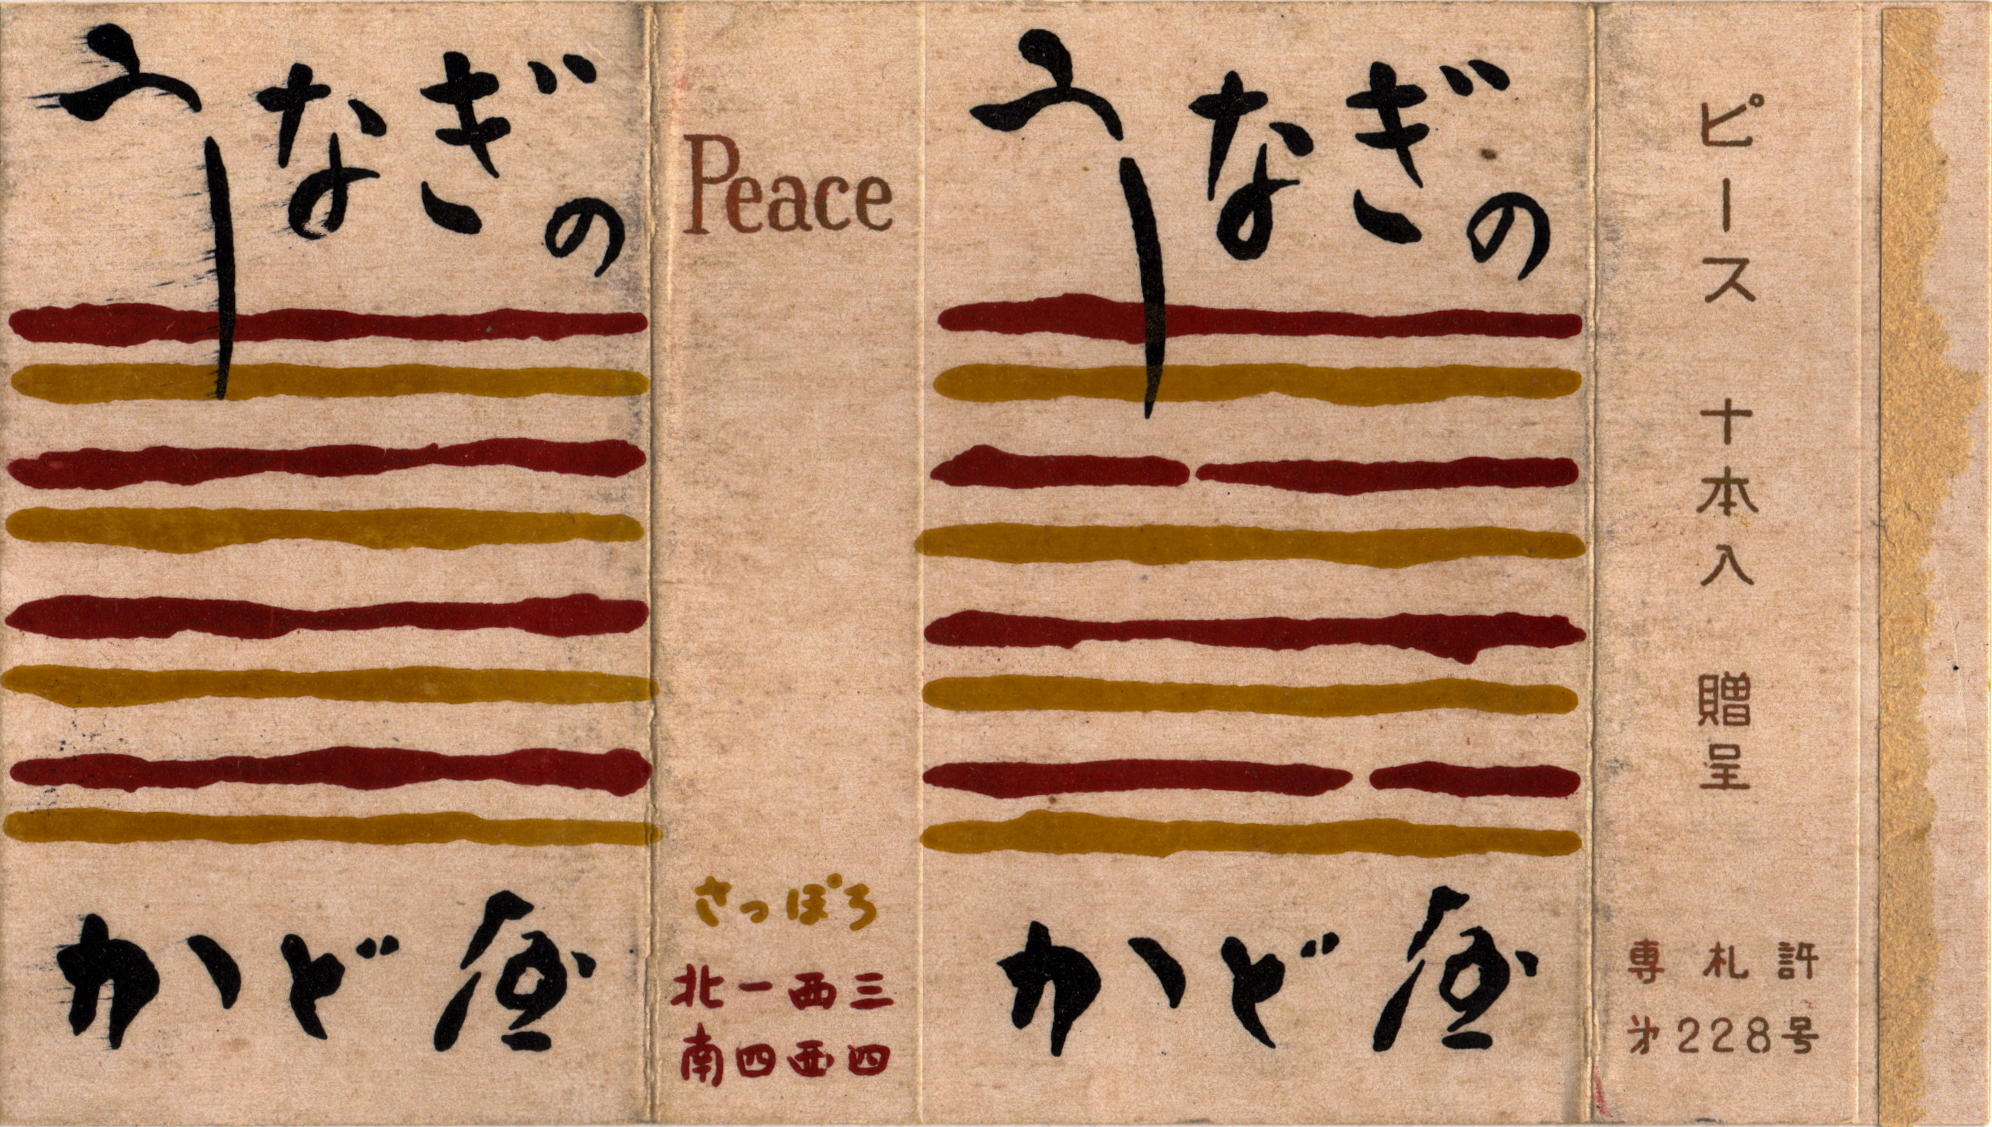 うなぎの
かど屋
Peace
さっぽろ
北一西三
南四西四
うなぎの
かど屋
ピース 十本入 贈呈
専札許
第228号